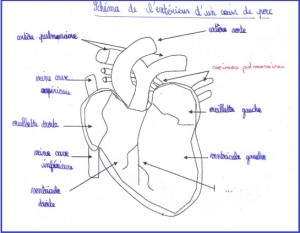 Schéma de l'extérieur d'un cœur de porc
artère pulmonaire
artère aorte
veine cave
supérieure
veines pulmonaires
oreillette droite
oreillette gauche
veine cave
inférieure
ventricule gauche
ventricule
droite
...